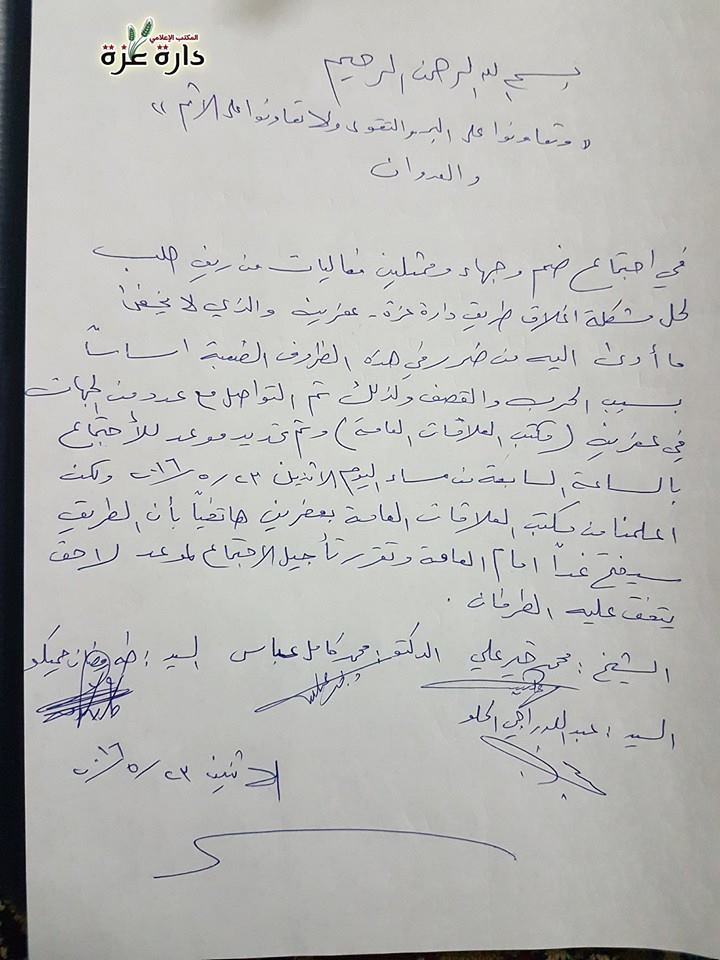 المكتب الإعلامي
دارة عزة
بسم الله الرحمن الرحيم
« وتعاونوا على البر والتقوى ولا تعاونوا على الاثم
والعدوان »
في اجتماع ضم وجهاء وممثلين فعاليات من ريف حلب
لحل مشكلة اغلاق طريق دارة عزة - عفرين والذي لا يخفى
ما أدى اليه من ضرر في هذه الظروف الصعبة اساساً
بسبب الحرب والقصف ولذلك تم التواصل مع عدد من الجهات
في عفرين (مكتب العلاقات العامة) وتم تحديد موعد للأجتماع
بالساعة السابعة من مساء اليوم الاثنين ٢٣ / ٥ / ٢٠١٦ ولكن
اعلمنا من مكتب العلاقات العامة بعفرين هاتفياً بأن الطريق
سيفتح غداً امام العامة وتقرر تأجيل الاجتماع لموعد لاحق
يتفق عليه الطرفان .
الشيخ : محمد خير علي الدكتور : محمد كامل عباس السيد : طه رمضان حميكو
السيد : عبد الله راجي الحلو
الاثنين ٢٣ / ٥ / ٢٠١٦